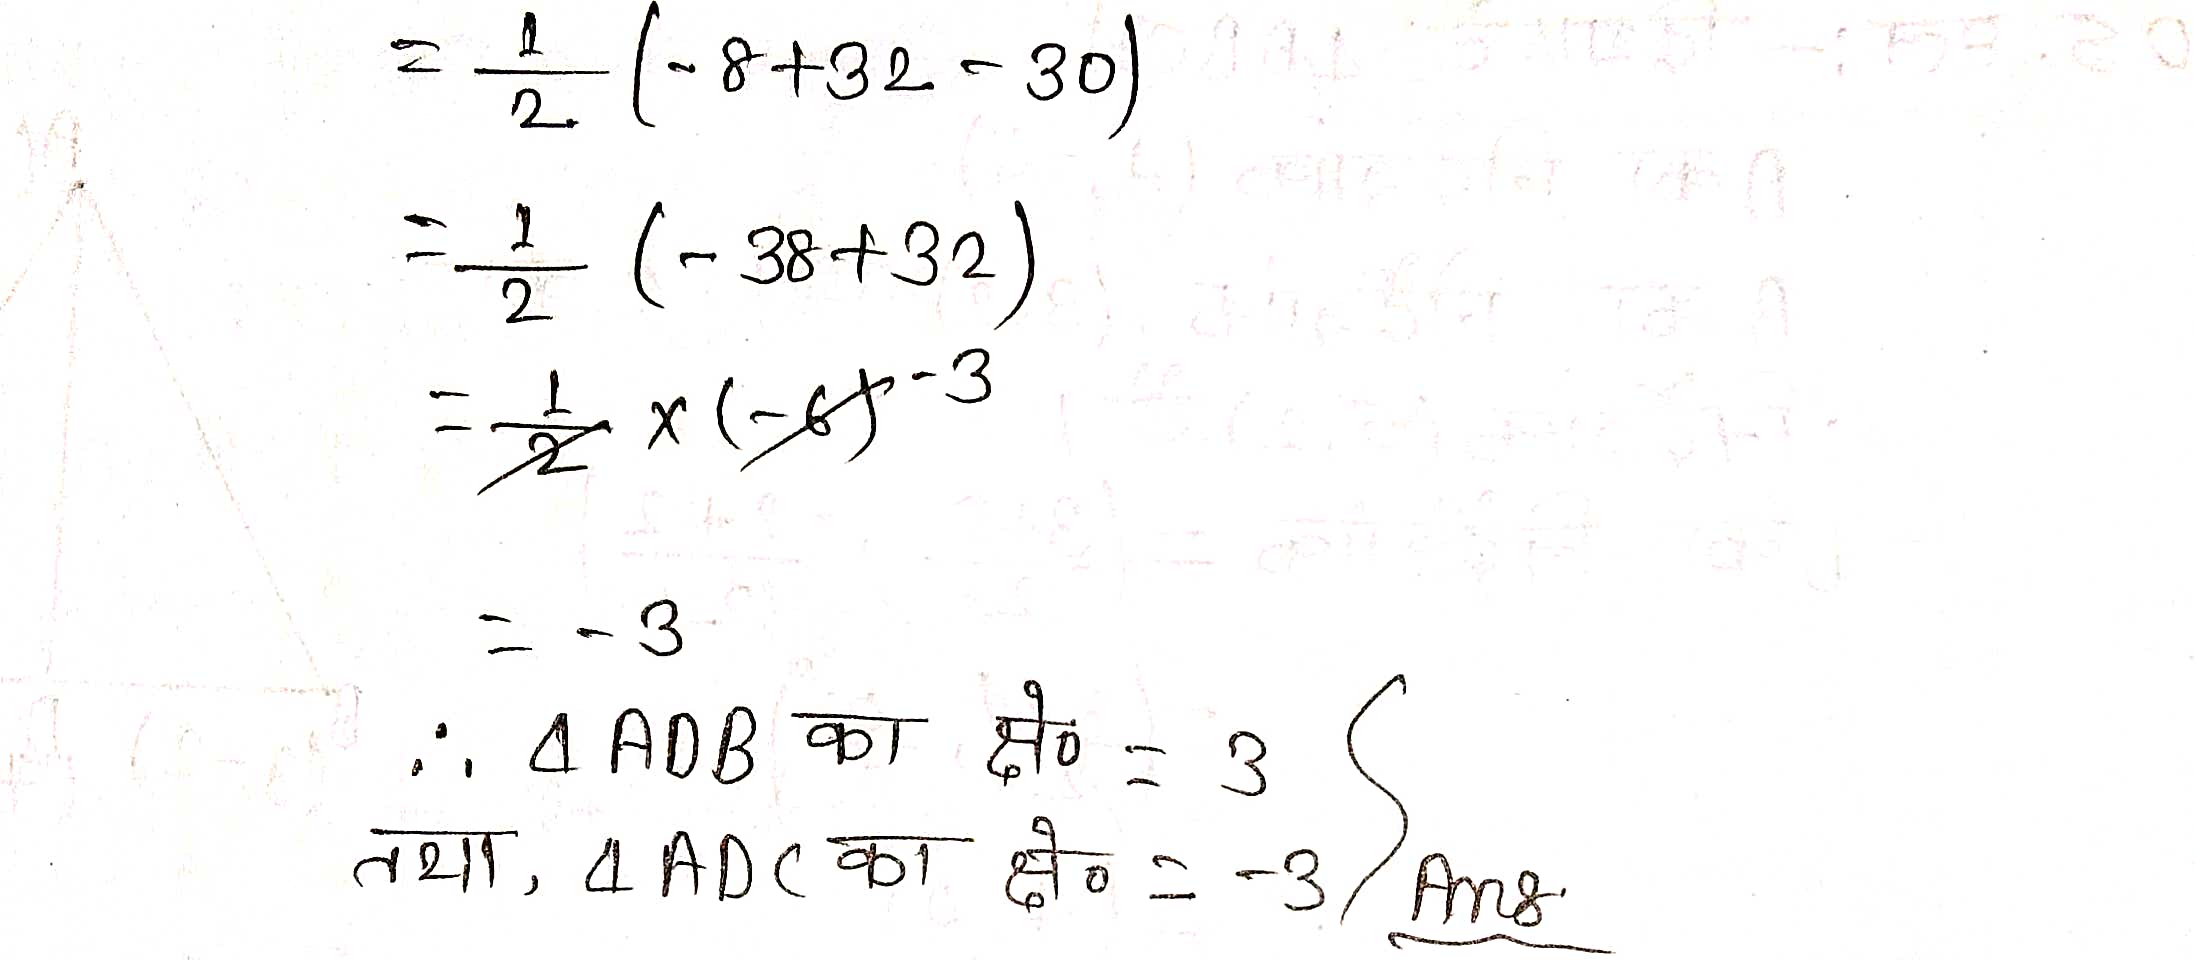 = 1/2 (-8+32-30)
= 1/2 (-38+32)
= 1/2 × (-6) -3
= -3
∴ Δ ADB का क्षे० = 3
तथा, Δ ADC का क्षे० = -3
Ans